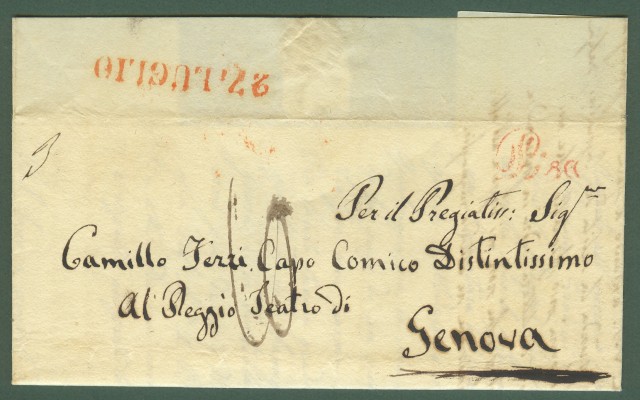 27. LUGLIO
Pisa
Per il Pregiatiss: Sig.re
Camillo Ferri Capo Comico Distintissimo
Al Reggio Teatro di
Genova